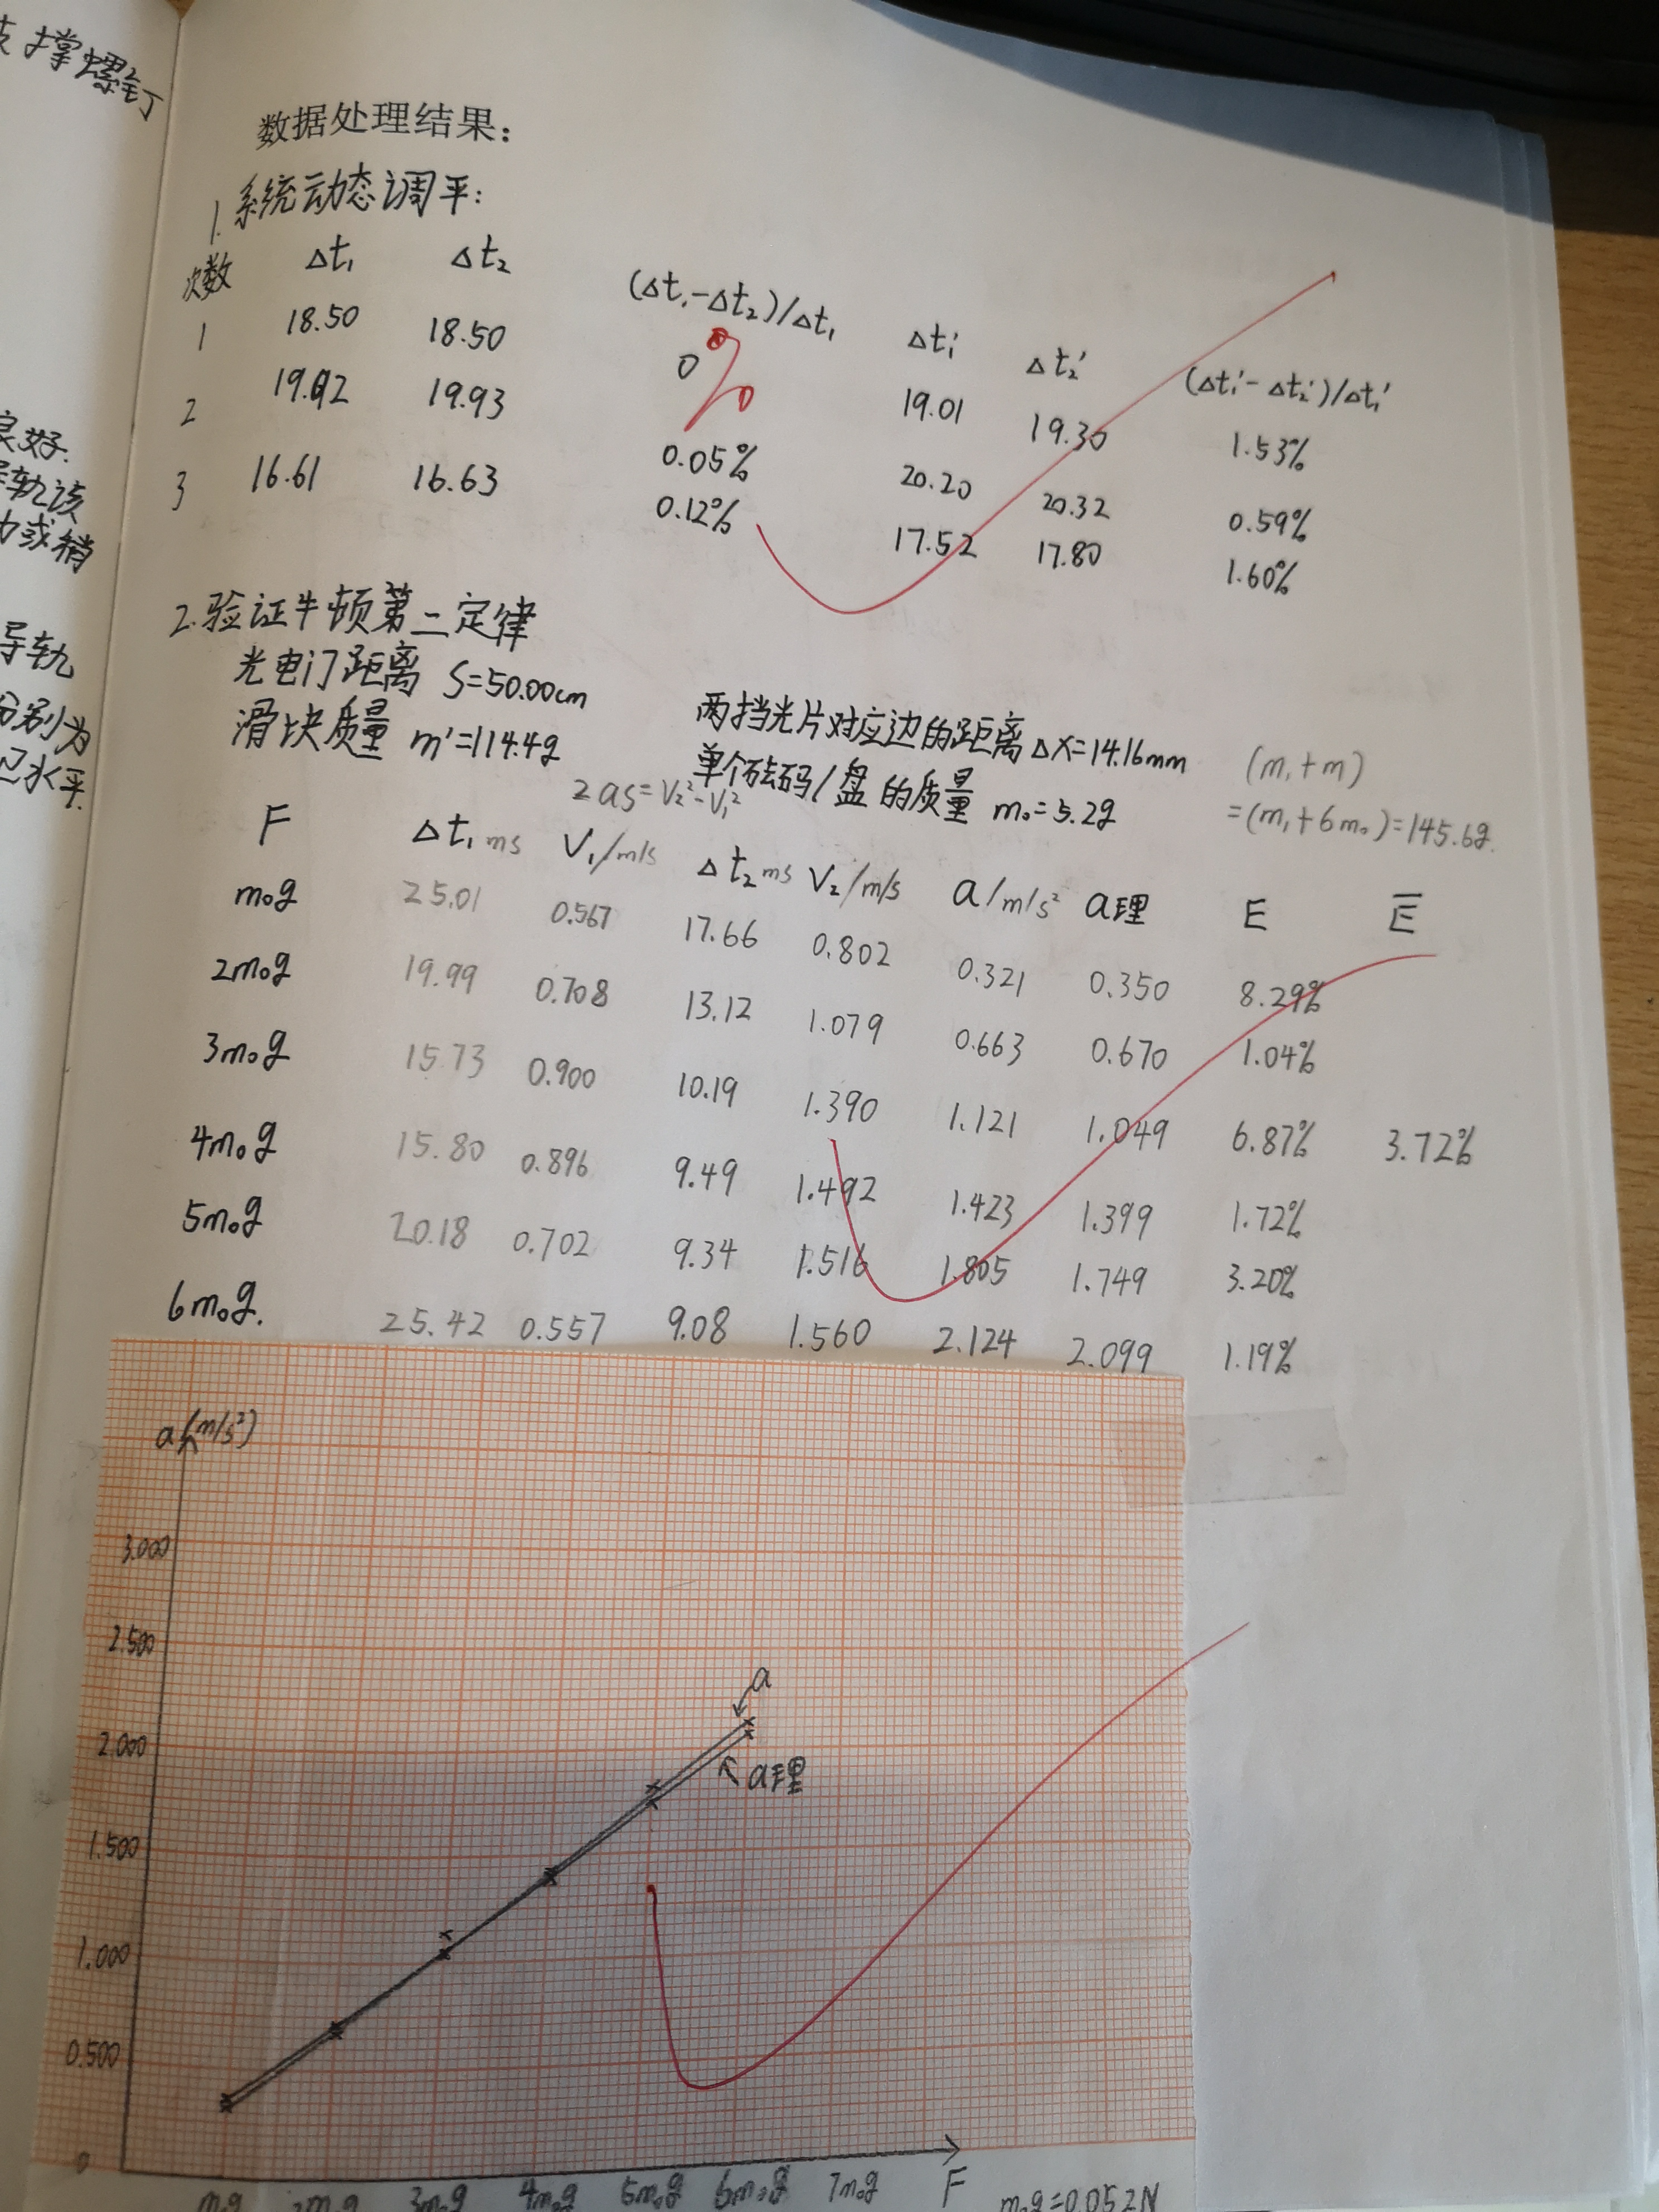 支撑螺钉
良好.
导轨
分别为
数据处理结果：
1. 系统动态调平：
次数 Δt₁ Δt₂ (Δt₁-Δt₂)/Δt₁ Δt₁' Δt₂' (Δt₁'-Δt₂')/Δt₁'
1 18.50 18.50 0% 19.01 19.30 1.53%
2 19.92 19.93 0.05% 20.20 20.32 0.59%
3 16.61 16.63 0.12% 17.52 17.80 1.60%
2. 验证牛顿第二定律
光电门距离 S=50.00cm 两挡光片对应边的距离 Δx=14.16mm (m₁+m)
滑块质量 m'=114.4g 单个砝码/盘的质量 m₀=5.2g =(m₁+6m₀)=145.6g.
2as=V₂²-V₁²
F Δt₁ ms V₁/m/s Δt₂ ms V₂/m/s a/m/s² a理 E E̅
m₀g 25.01 0.567 17.66 0.802 0.321 0.350 8.29%
2m₀g 19.99 0.708 13.12 1.079 0.663 0.670 1.04%
3m₀g 15.73 0.900 10.19 1.390 1.121 1.049 6.87% 3.72%
4m₀g 15.80 0.896 9.49 1.492 1.423 1.399 1.72%
5m₀g 20.18 0.702 9.34 1.516 1.805 1.749 3.20%
6m₀g. 25.42 0.557 9.08 1.560 2.124 2.099 1.19%
a(m/s²)
3.000
2.500
a
2.000
a理
1.500
1.000
0.500
0
m₀g 2m₀g 3m₀g 4m₀g 5m₀g 6m₀g 7m₀g F m₀g=0.052N